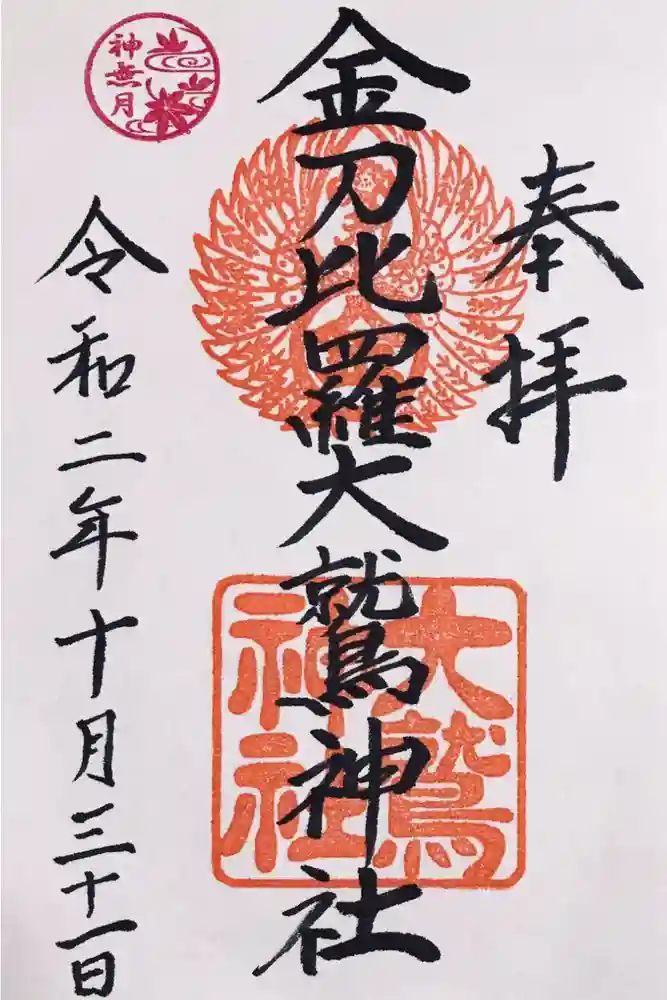 奉拝
金刀比羅大鷲神社
大鷲神社
神無月
令和二年十月三十一日